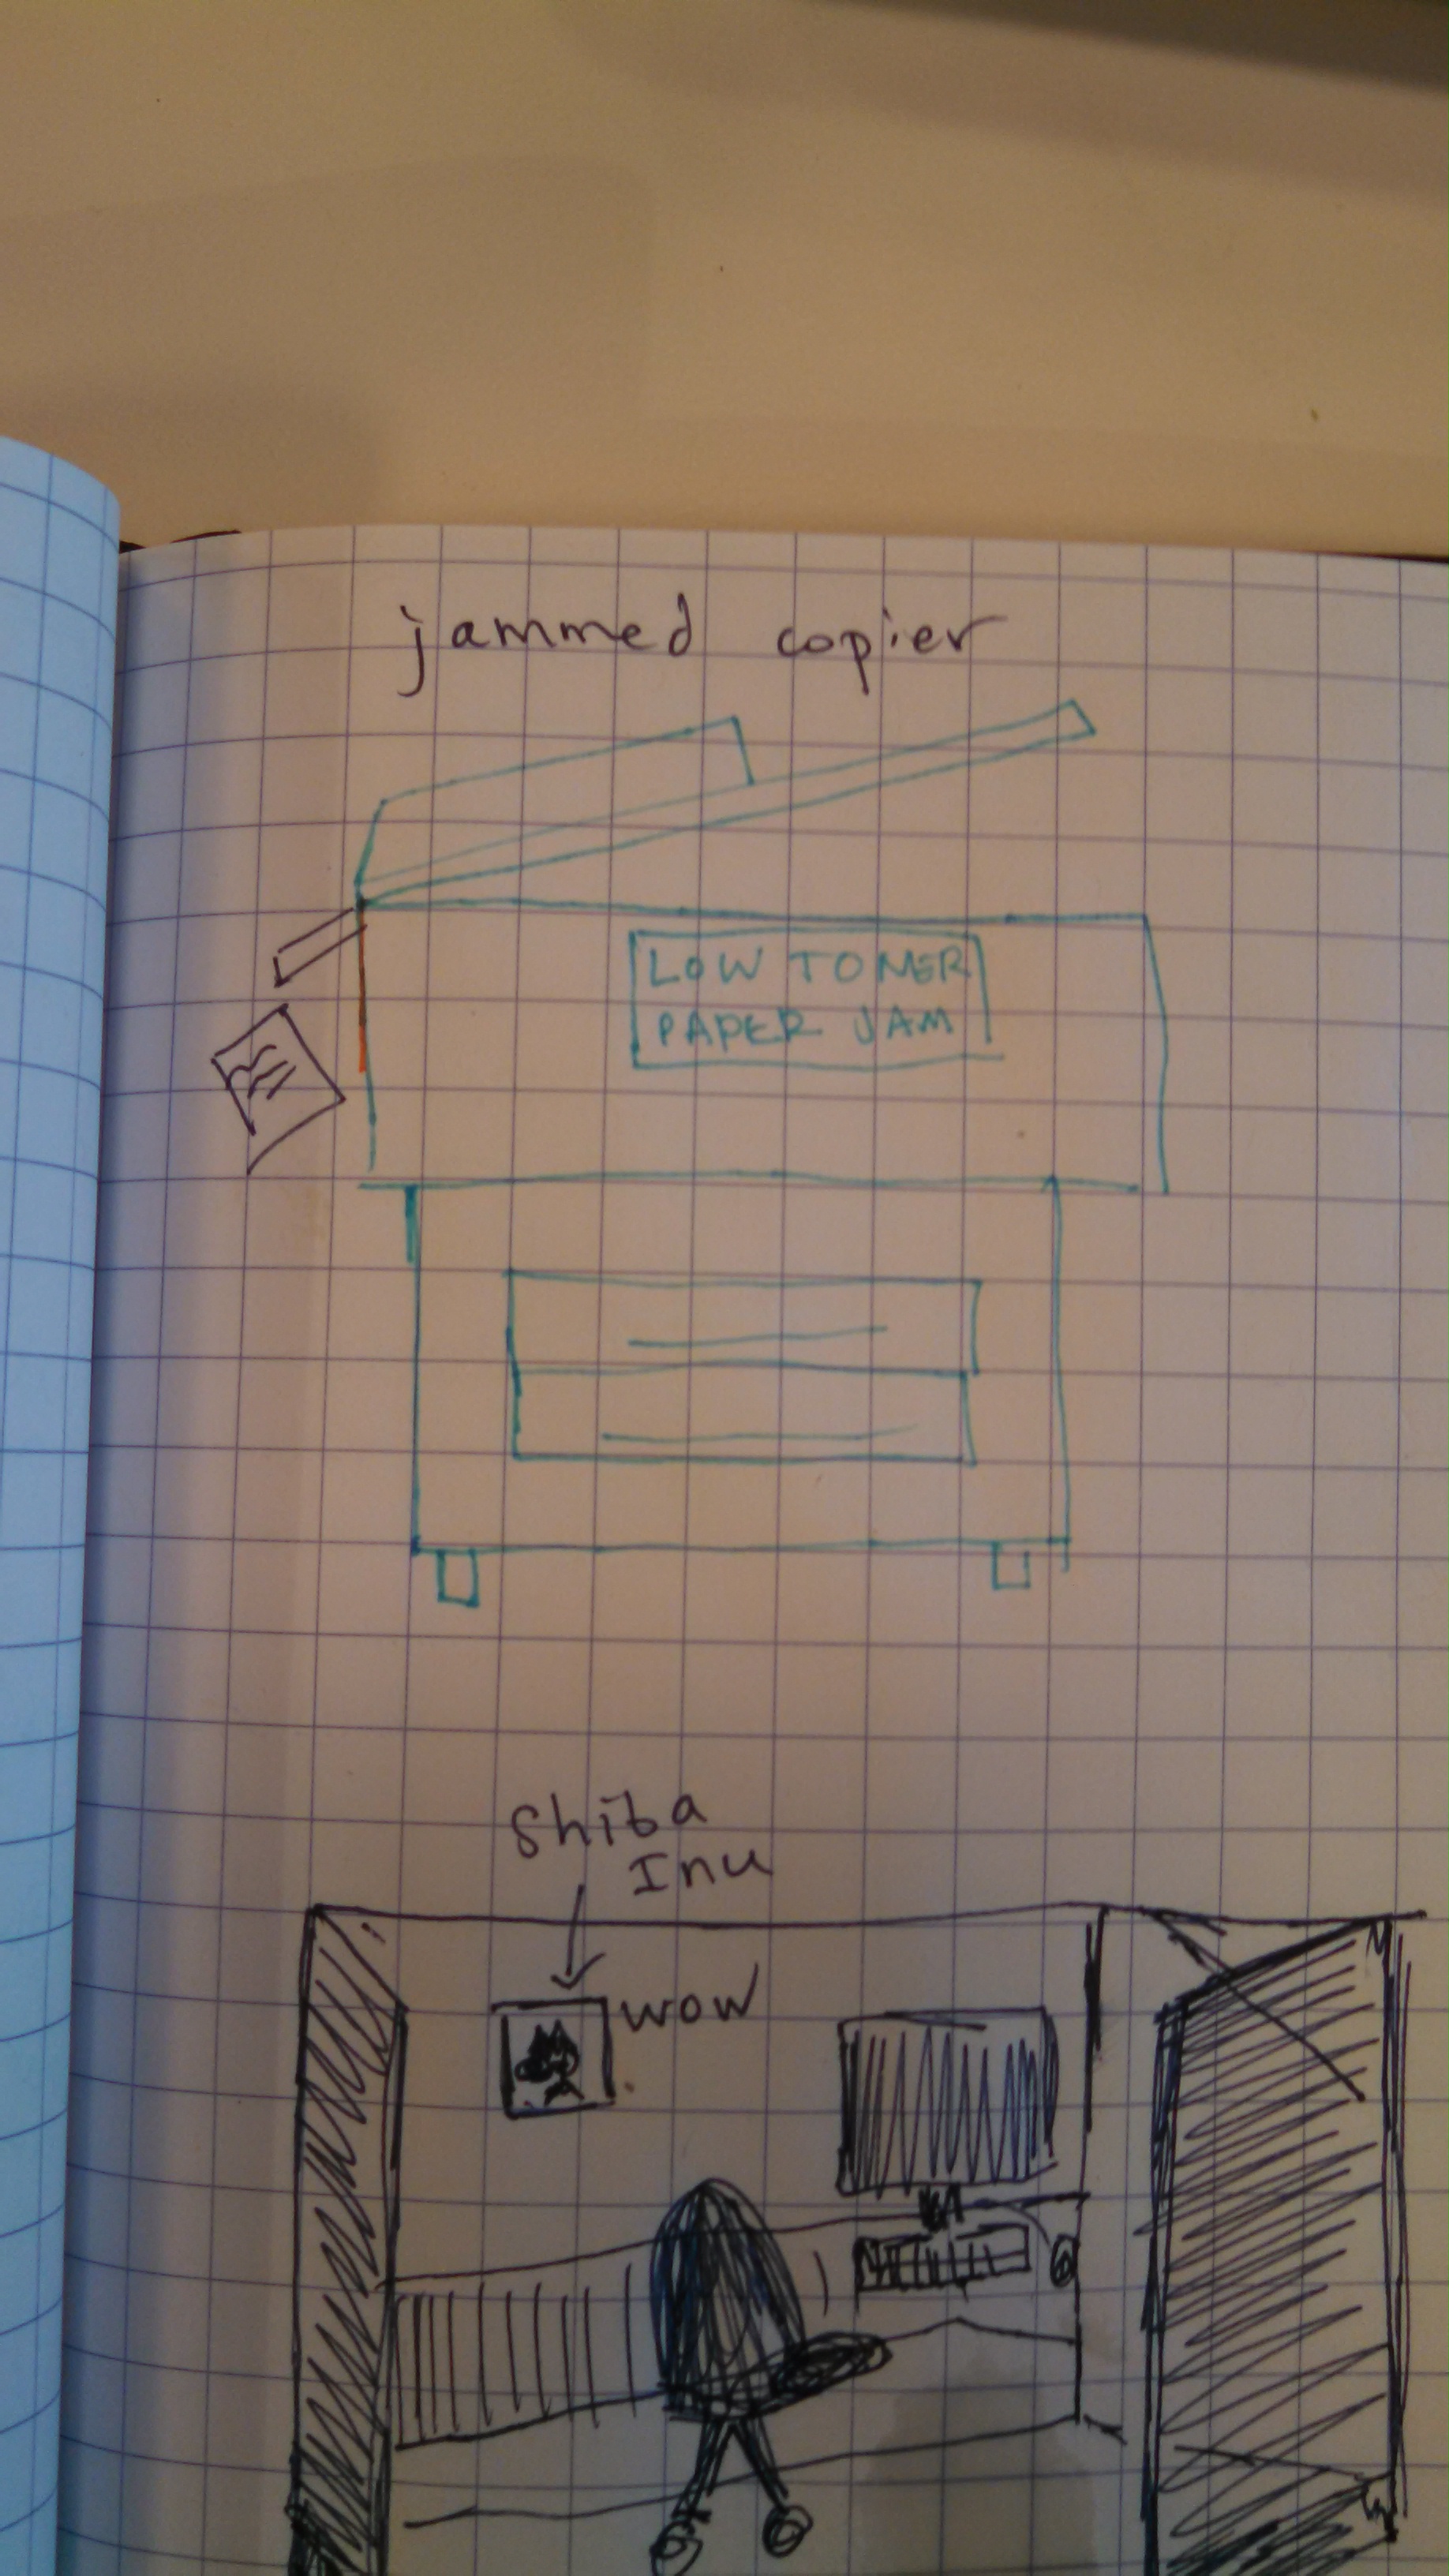 jammed copier
LOW TONER
PAPER JAM
Shiba
Inu
wow